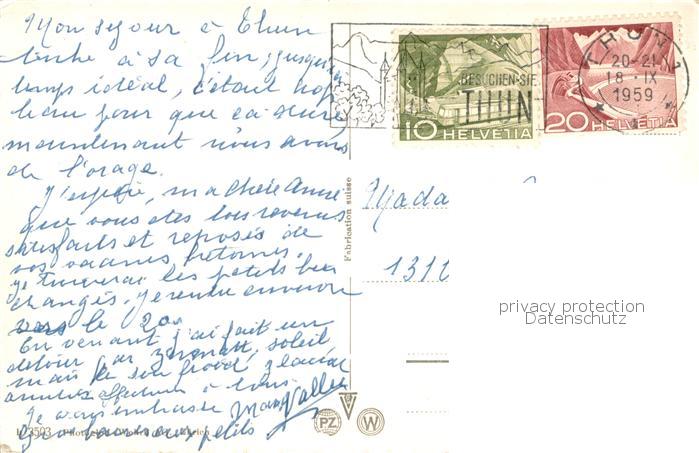 Mon séjour à Thun
touche à sa fin, jusqu'ici
temps idéal, c'était trop
beau pour que ça dure
maintenant nous avons
de l'orage.
J'espère, ma chère Anne
que vous êtes tous revenus
satisfaits et reposés de
vos vacances
je trouverai les petits bien
changés. Je rentre environ
vers le 20.
En venant j'ai fait un
détour par Zermatt, soleil
mais froid glacial
amitiés affectueuses à tous.
Je vous embrasse
petits
Fabrication suisse
Mada
1311
BESUCHEN SIE
THUN
10 HELVETIA
20 HELVETIA
THUN 1
20-21
18.IX
1959
privacy protection
Datenschutz
PZ
W
3593